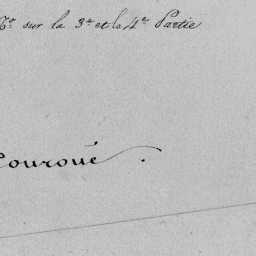 Tr. sur la 3e. et la 4e. Partie
Couroué.